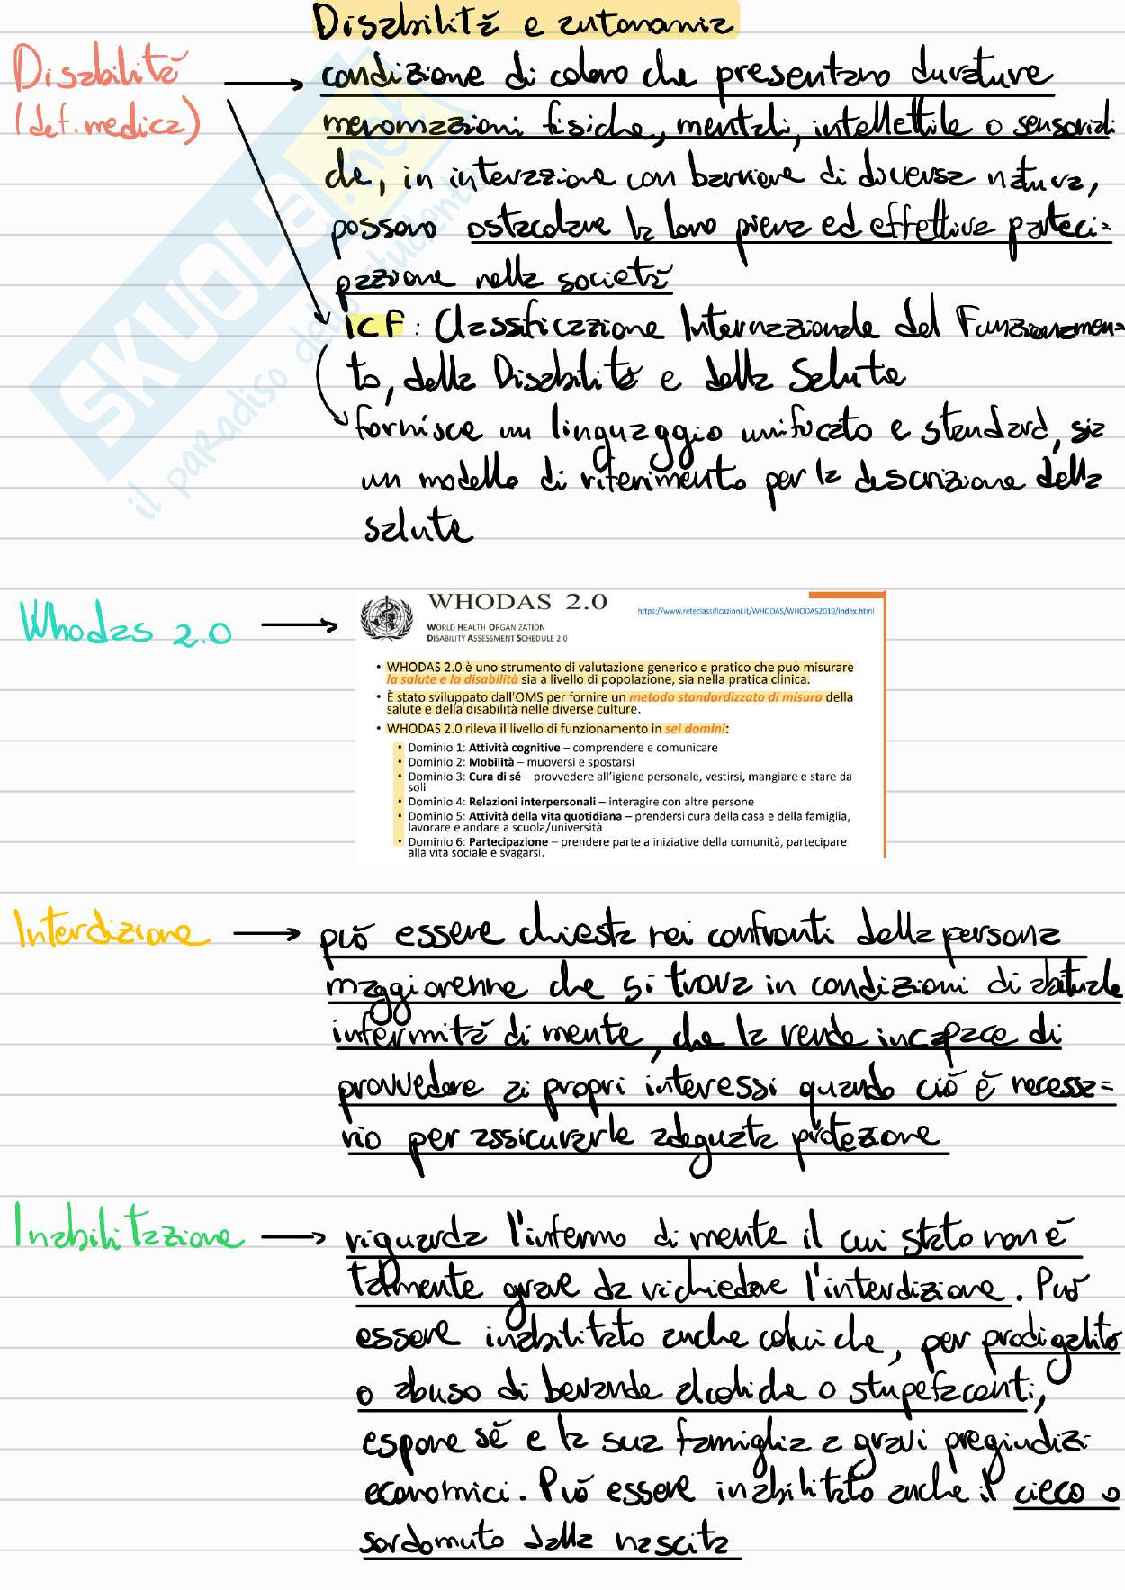 Disabilità e autonomia
Disabilità
(def. medica)
condizione di coloro che presentano durature
menomazioni fisiche, mentali, intellettile o sensoriali
che, in interazione con barriere di diversa natura,
possono ostacolare la loro piena ed effettiva parteci=
pazione nella società
ICF: Classificazione Internazionale del Funzionamen-
to, della Disabilità e della Salute
fornisce un linguaggio unificato e standard, sia
un modello di riferimento per la descrizione della
salute
SKUOLA.net
il paradiso dello studente
Whodas 2.0
WHODAS 2.0
https://www.reteclassificazioni.it/WHODAS/WHODAS2013/index.html
WORLD HEALTH ORGANIZATION
DISABILITY ASSESSMENT SCHEDULE 2.0
• WHODAS 2.0 è uno strumento di valutazione generico e pratico che può misurare
la salute e la disabilità sia a livello di popolazione, sia nella pratica clinica.
• È stato sviluppato dall'OMS per fornire un metodo standardizzato di misura della
salute e della disabilità nelle diverse culture.
• WHODAS 2.0 rileva il livello di funzionamento in sei domini:
• Dominio 1: Attività cognitive – comprendere e comunicare
• Dominio 2: Mobilità – muoversi e spostarsi
• Dominio 3: Cura di sé – provvedere all'igiene personale, vestirsi, mangiare e stare da
soli
• Dominio 4: Relazioni interpersonali – interagire con altre persone
• Dominio 5: Attività della vita quotidiana – prendersi cura della casa e della famiglia,
lavorare e andare a scuola/università
• Dominio 6: Partecipazione – prendere parte a iniziative della comunità, partecipare
alla vita sociale e svagarsi.
Interdizione
può essere chiesta nei confronti della persona
maggiorenne che si trova in condizioni di abituale
infermità di mente, che la rende incapace di
provvedere ai propri interessi quando ciò è necessa=
rio per assicurarle adeguata protezione
Inabilitazione
riguarda l'infermo di mente il cui stato non è
talmente grave da richiedere l'interdizione. Può
essere inabilitato anche colui che, per prodigalità
o abuso di bevande alcoliche o stupefacenti,
espone sé e la sua famiglia a gravi pregiudizi
economici. Può essere inabilitato anche il cieco o
sordomuto dalla nascita